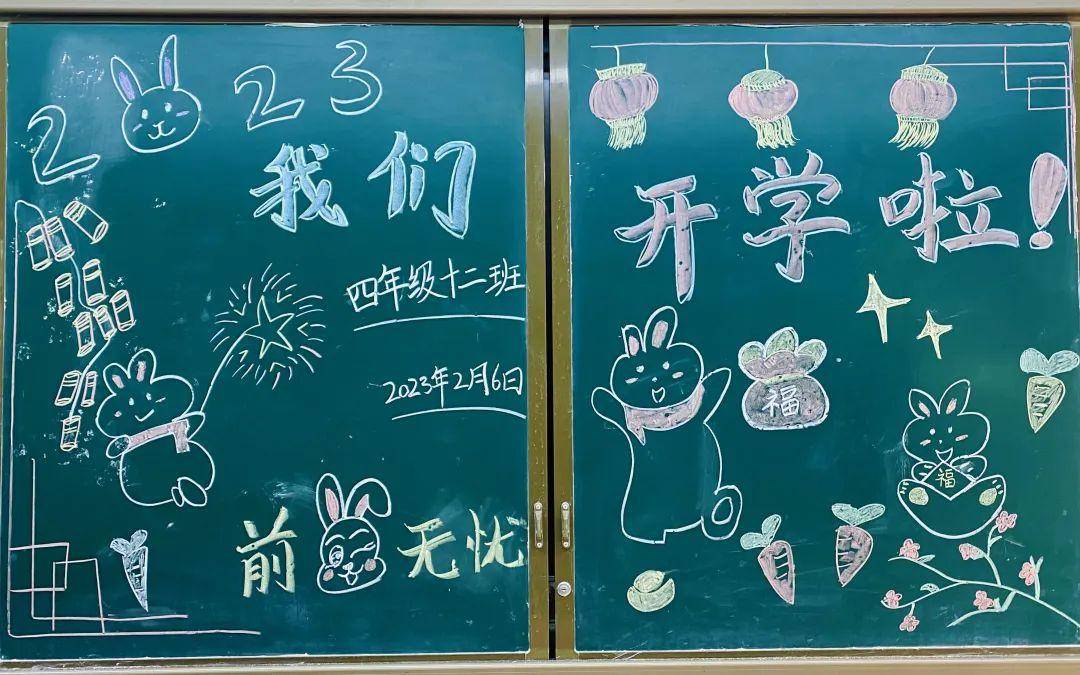 2 23
我们
四年级十二班
2023年2月6日
前 无忧
开学啦!
福
福